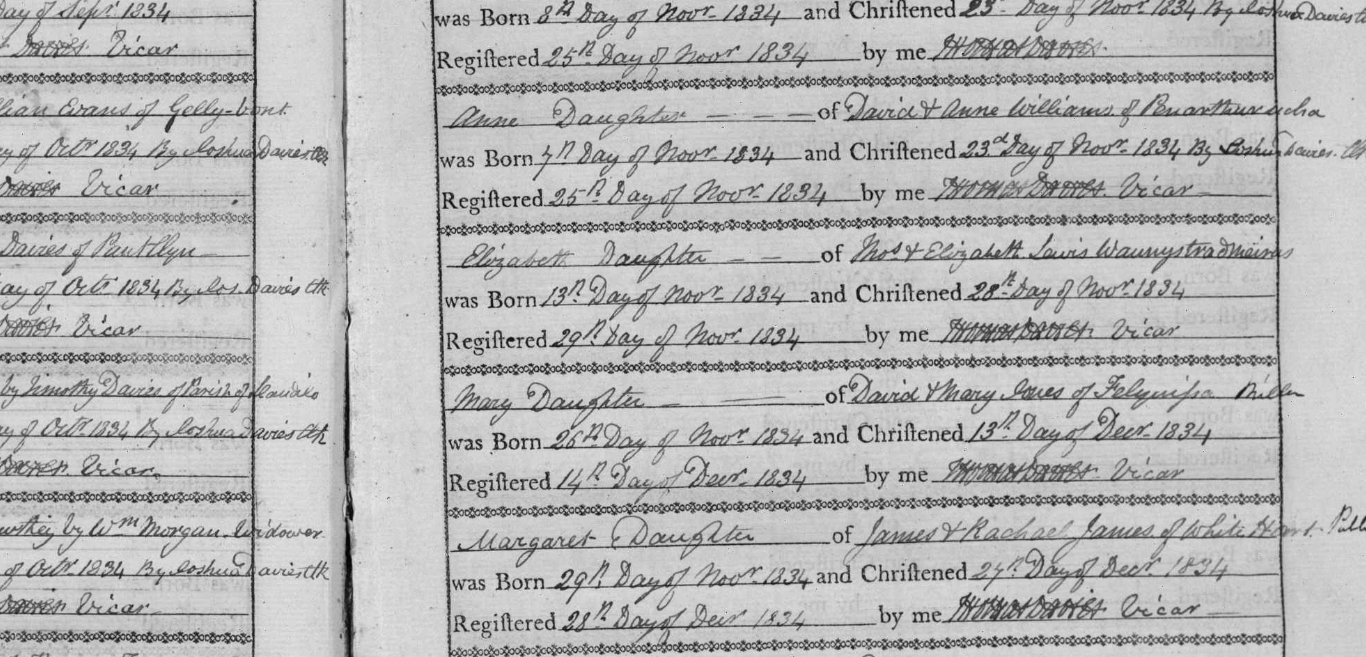 day of Sept.r 1834
Davies Vicar
Evans of Gelly-bont
of Octr 1834 By Joshua Davies Clk
Davies Vicar
Davies of Pantllyn
day of Octr 1834 By Jos. Davies Clk
Davies Vicar
by Timothy Davies of Parish of Llandilo
of Octr 1834 By Joshua Davies Clk
Davies Vicar
by Wm Morgan, Widower
of Octr 1834 By Joshua Davies Clk
Davies Vicar
was Born 8th Day of Novr 1834 and Chriſtened 23d Day of Novr 1834 By Joshua Davies
Regiſtered 25th Day of Novr 1834 by me Thomas Davies
Anne Daughter of David & Anne Williams of Penarthur ucha
was Born 7th Day of Novr 1834 and Chriſtened 23d Day of Novr 1834 By Joshua Davies Clk
Regiſtered 25th Day of Novr 1834 by me Thomas Davies Vicar
Elizabeth Daughter of Thos & Elizabeth Lewis
was Born 13th Day of Novr 1834 and Chriſtened 28th Day of Novr 1834
Regiſtered 29th Day of Novr 1834 by me Thomas Davies Vicar
Mary Daughter of David & Mary Jones of
was Born 26th Day of Novr 1834 and Chriſtened 13th Day of Decr 1834
Regiſtered 14th Day of Decr 1834 by me Thomas Davies Vicar
Margaret Daughter of James & Rachael James of White Hart
was Born 29th Day of Novr 1834 and Chriſtened 27th Day of Decr 1834
Regiſtered 28th Day of Decr 1834 by me Thomas Davies Vicar